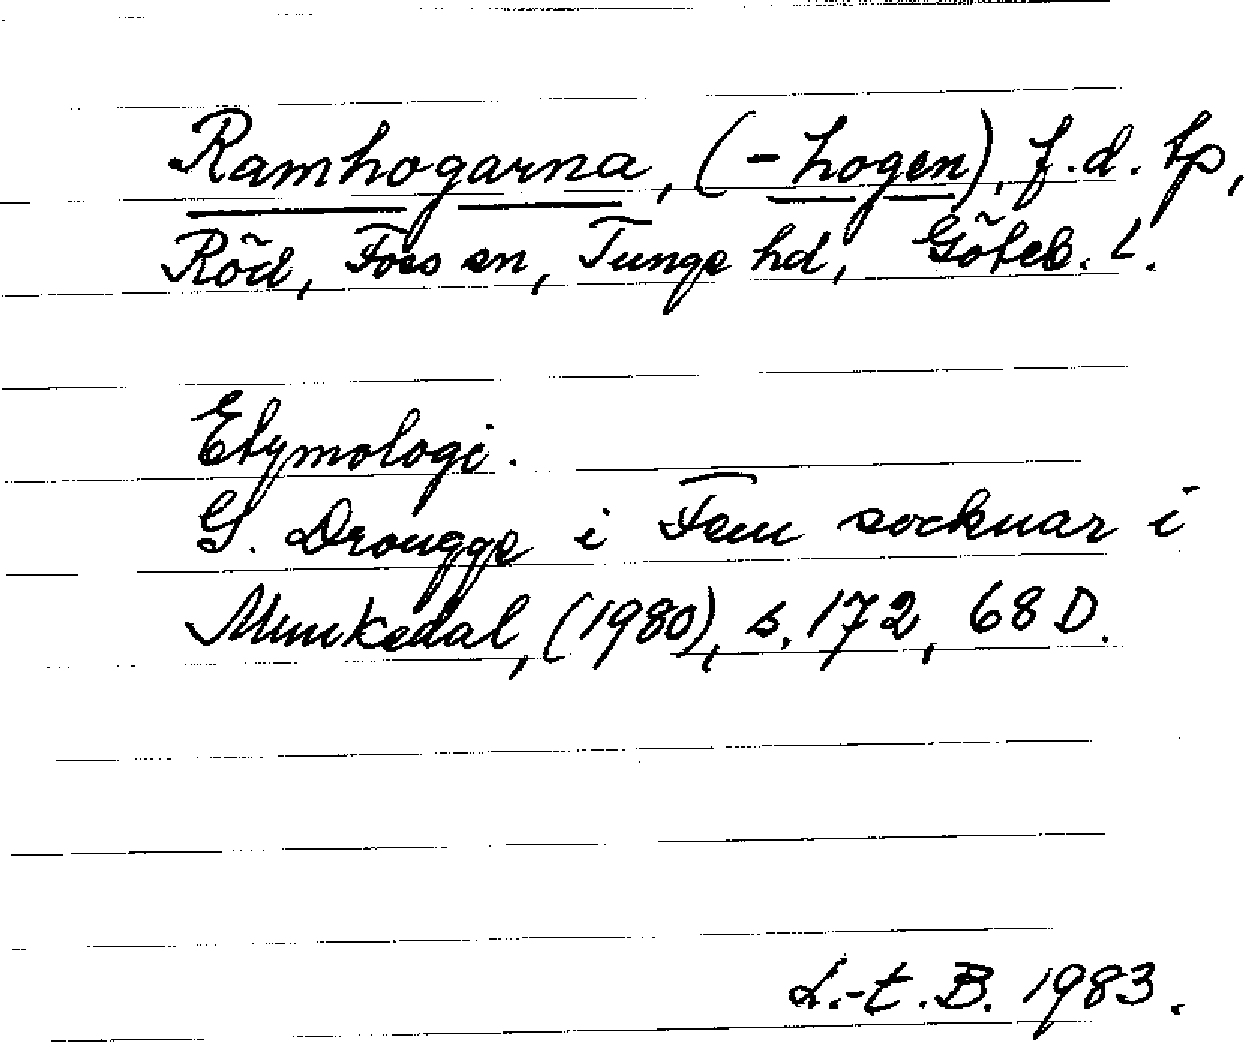 Ramhogarna, (-hogen), f.d. tp,
Röd, Foss sn, Tunge hd, Göteb. L.
Etymologi.
G. Drougge i Fem socknar i
Munkedal, (1980), s. 172, 68 D.
L.-t. B. 1983.